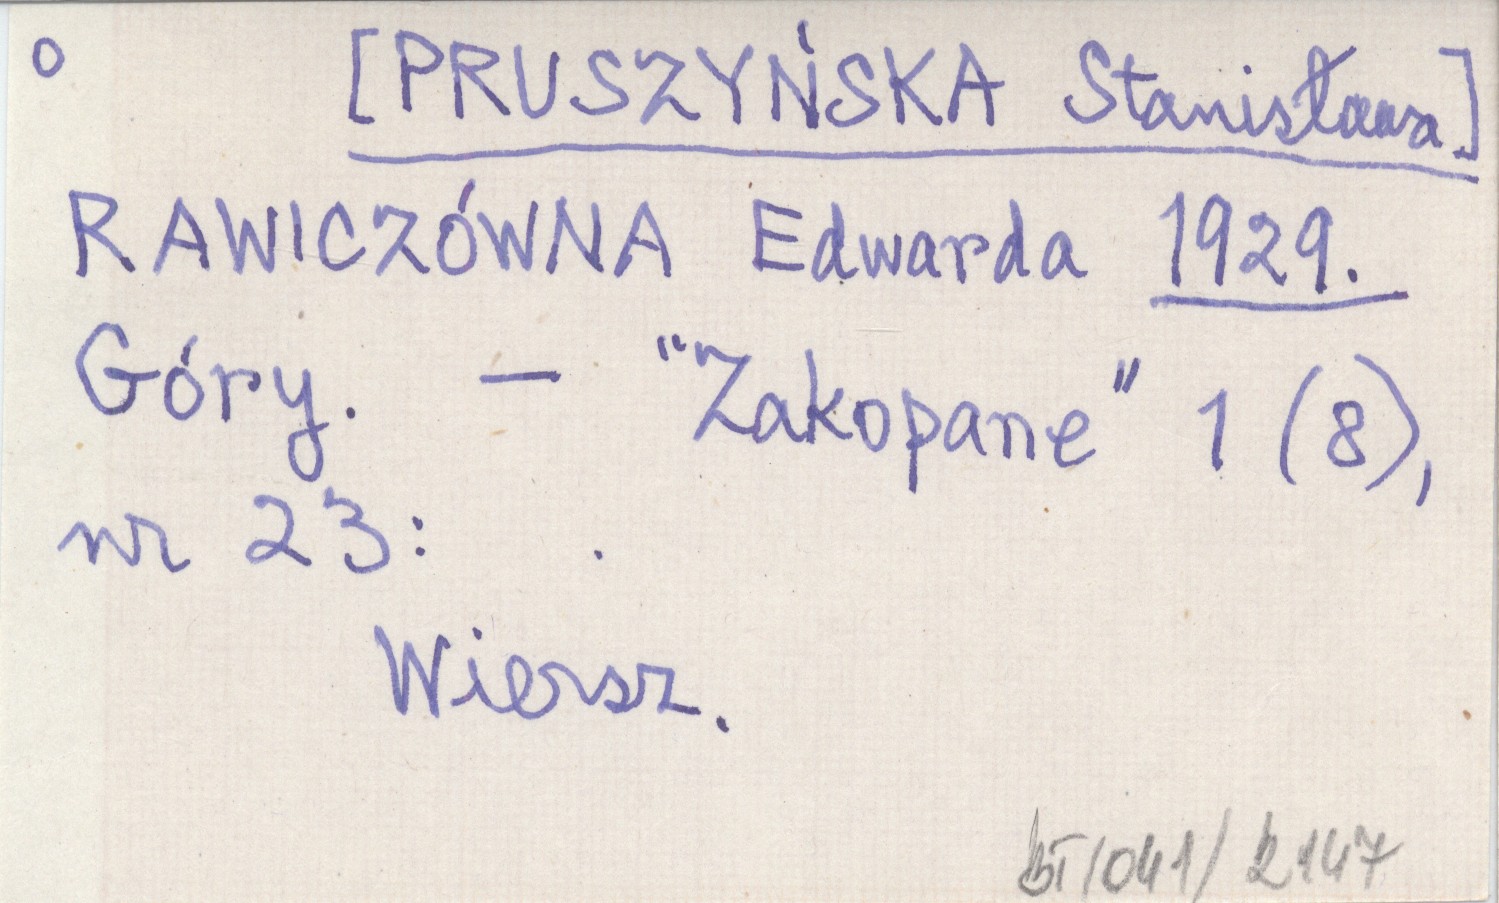 o [PRUSZYŃSKA Stanisława.]
RAWICZÓWNA Edwarda 1929.
Góry. — "Zakopane" 1 (8),
nr 23: .
Wiersz.
BT/041/2147